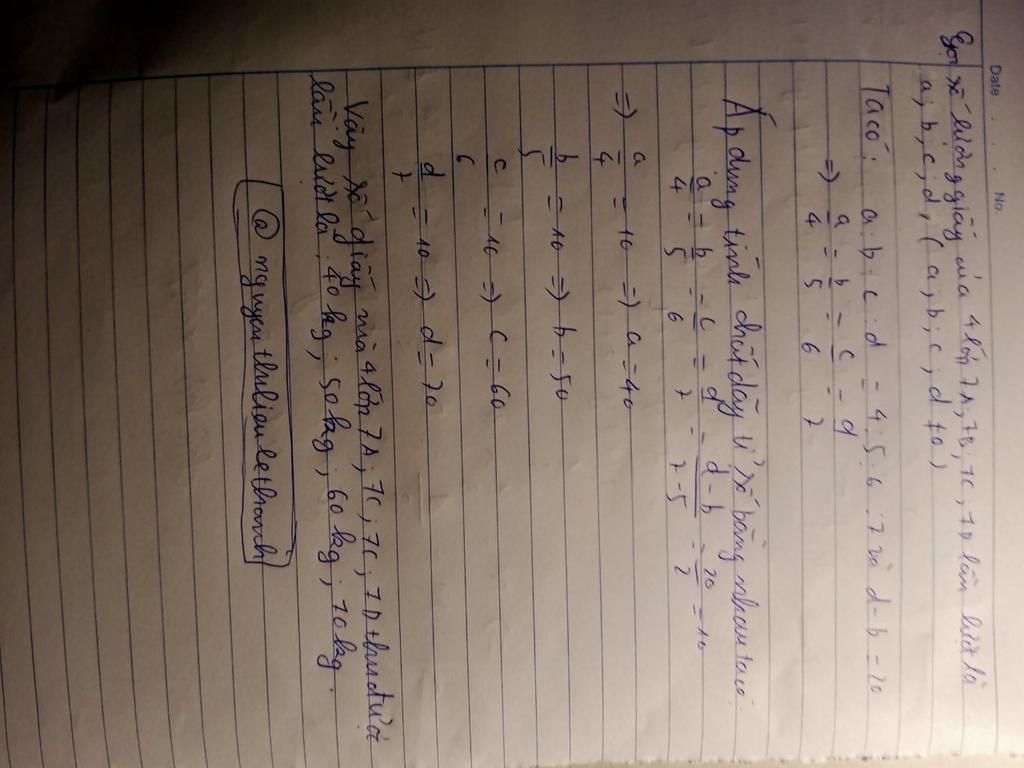 Date . . . No.
Gọi số lượng giấy của 4 lớp 7A, 7B, 7C, 7D lần lượt là
a; b; c; d, ( a; b; c; d ≠ 0 )
Ta có: a : b : c : d = 4 : 5 : 6 : 7 và d - b = 20
=> a/4 = b/5 = c/6 = d/7
Áp dụng tính chất dãy tỉ số bằng nhau ta có:
a/4 = b/5 = c/6 = d/7 = d-b/7-5 = 20/2 = 10
=> a/4 = 10 => a = 40
b/5 = 10 => b = 50
c/6 = 10 => c = 60
d/7 = 10 => d = 70
Vậy số giấy mà 4 lớp 7A; 7C; 7C; 7D thu được
lần lượt là 40 kg; 50 kg; 60 kg; 70 kg.
@ nguyenthilienlethanh